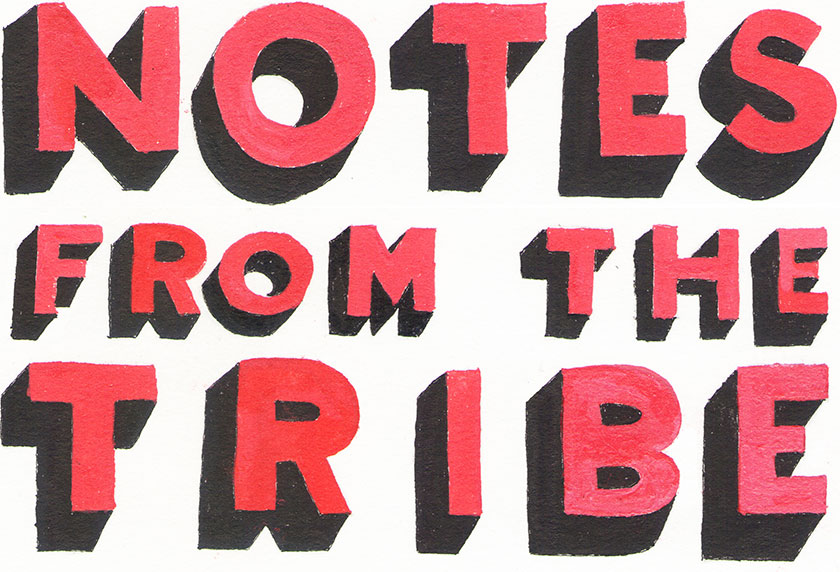 NOTES
FROM THE
TRIBE